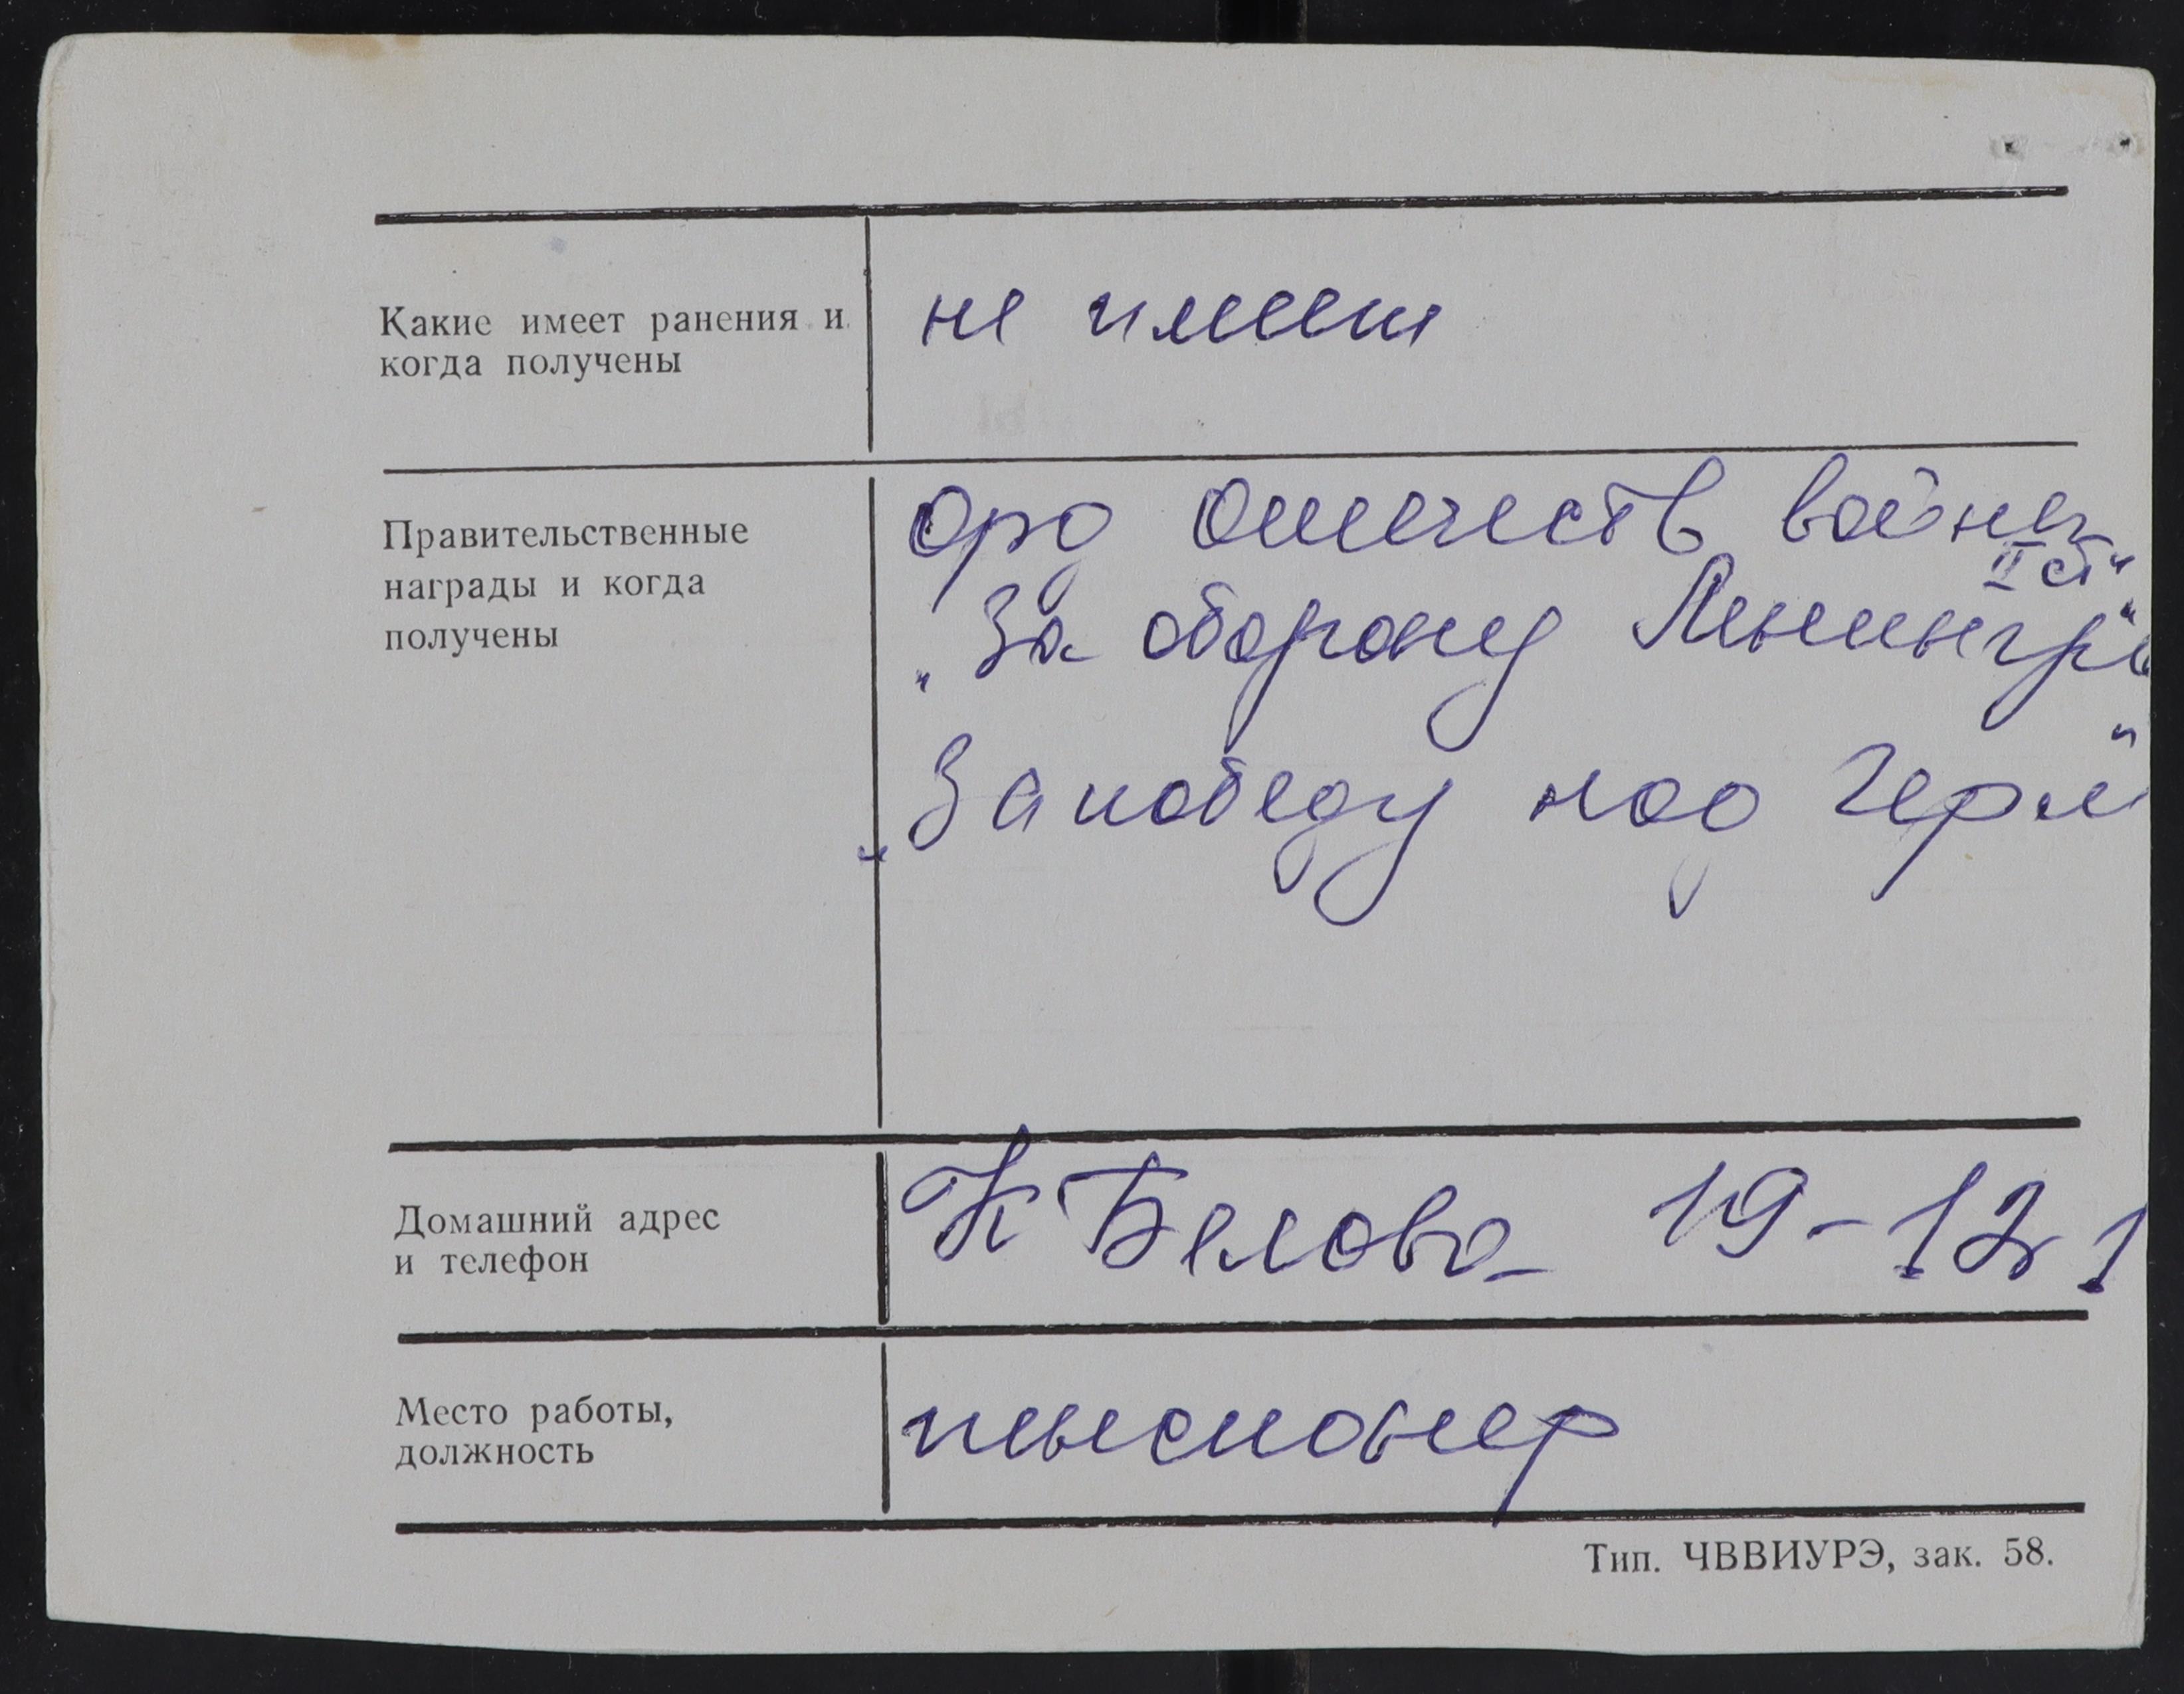 Какие имеет ранения и
когда получены
не имеет
Правительственные
награды и когда
получены
орд Отечеств войны
II ст"
„За оборону Ленингра"
„За победу над Герм"
Домашний адрес
и телефон
К Белова 19-121
Место работы,
должность
пенсионер
Тип. ЧВВИУРЭ, зак. 58.